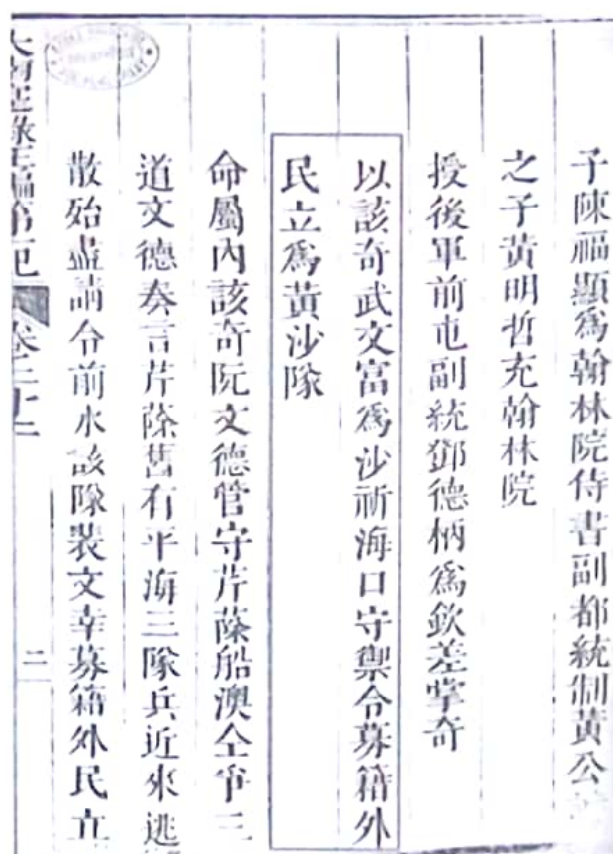 子陳福顯為翰林院侍書副都統制黃公
之子黃明哲充翰林院
授後軍前屯副統鄧德柄為欽差掌奇
以該奇武文富為沙祈海口守禦令募籍外
民立為黃沙隊
命屬內該奇阮文德管守芹蒢船澳仝寕三
道文德奏言芹蒢舊有平海三隊兵近來逃
散殆盡請令前水該隊裴文幸募籍外民立
大南寔錄正編第一紀 卷二十二
二